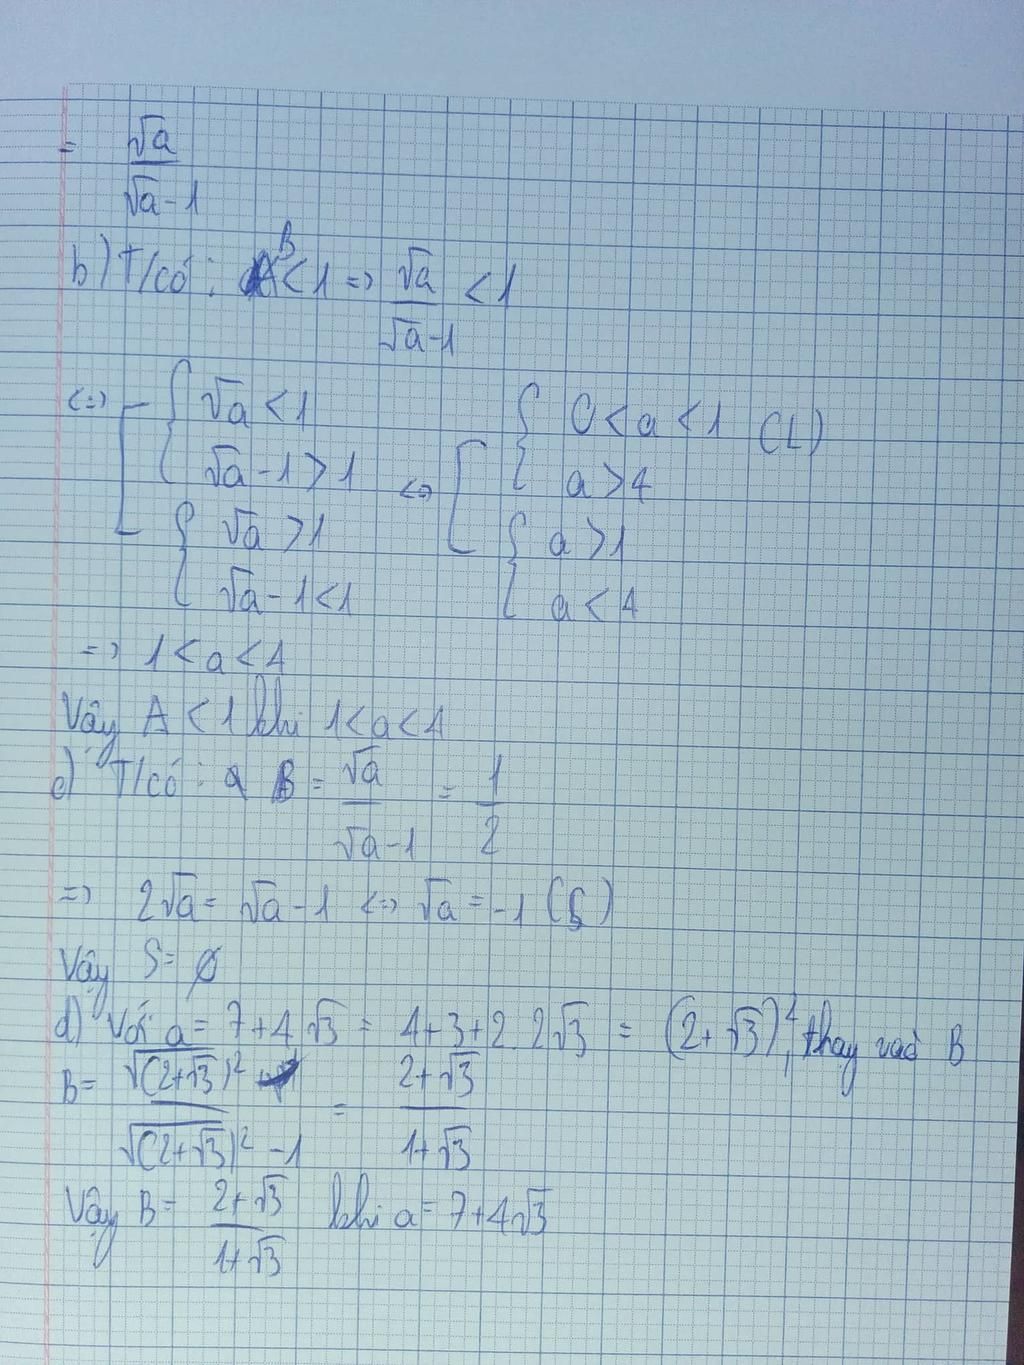 = √a / (√a - 1)
b) T/có: B < 1 => √a / (√a - 1) < 1
<=> [ { √a < 1 <=> [ { 0 < a < 1 (L)
√a - 1 > 1 a > 4
{ √a > 1 { a > 1
√a - 1 < 1 a < 4
=> 1 < a < 4
Vậy A < 1 khi 1 < a < 4
c) T/có: B = √a / (√a - 1) = 1/2
=> 2√a = √a - 1 <=> √a = -1
Vậy S = ∅
d) Với a = 7 + 4√3 = 4 + 3 + 2.2√3 = (2 + √3)², thay vào B
B = √(2+√3)² / (√(2+√3)² - 1) = (2 + √3) / (1 + √3)
Vậy B = (2 + √3) / (1 + √3) khi a = 7 + 4√3